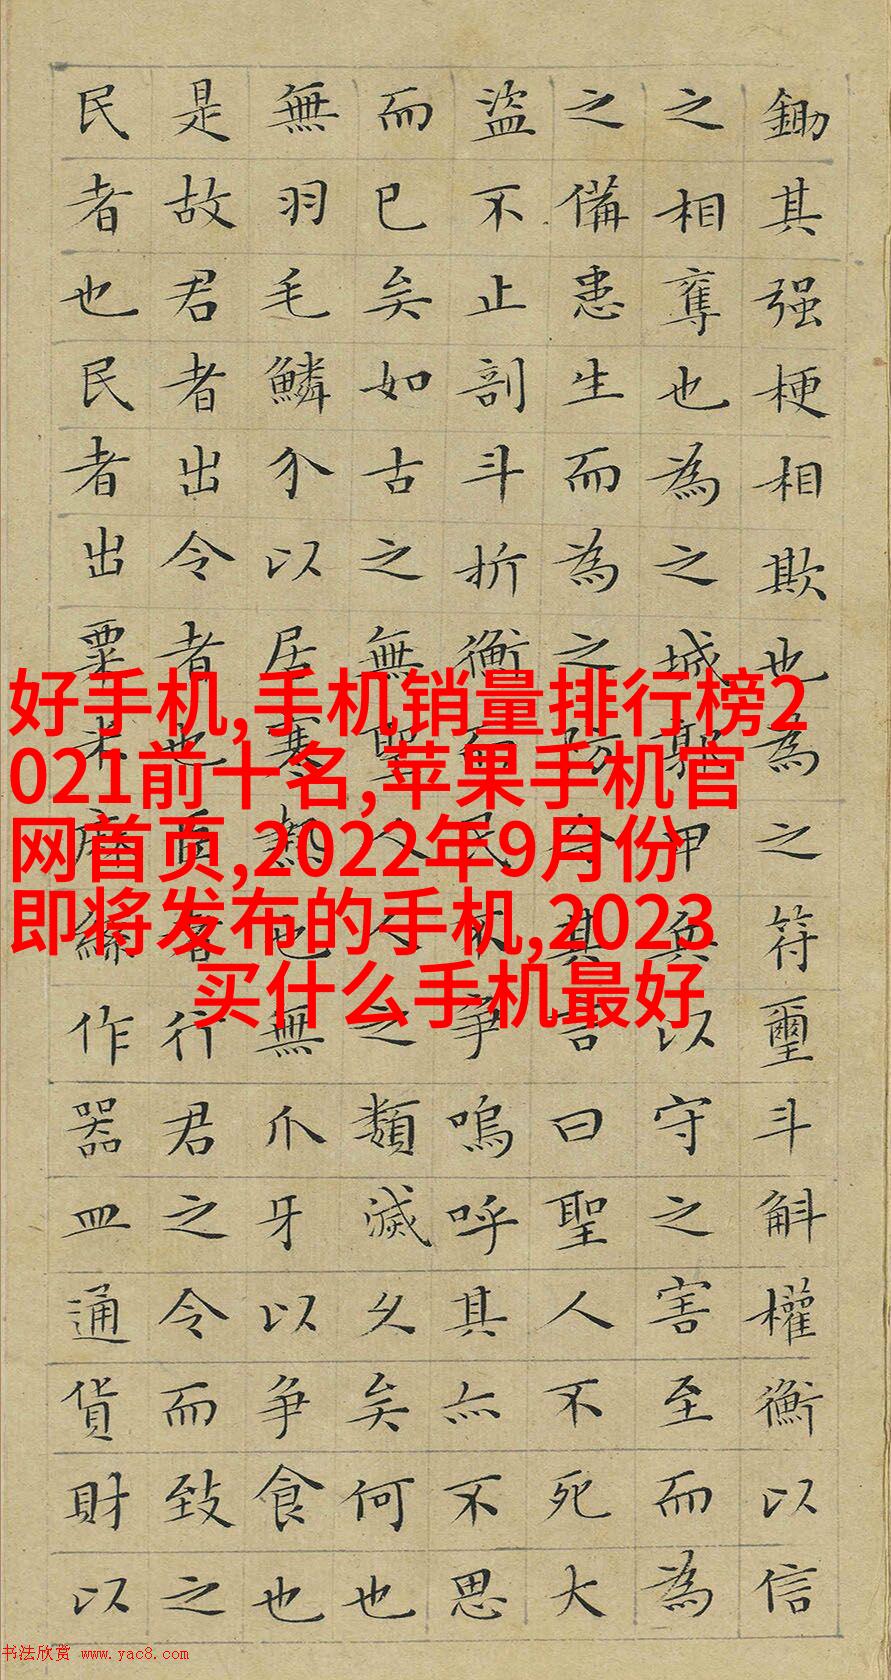 鋤其强梗相欺也為之符璽斗斛權衡以信
之相奪也為之城郭甲兵以守之害至而為
之備患生而為之防今其言曰聖人不死大
盜不止剖斗折衡而民不爭嗚呼其亦不思
而已矣如古之無聖人人之類滅久矣何也
無羽毛鱗介以居寒熱也無爪牙以爭食也
是故君者出令者也臣者行君之令而致之
民者也民者出粟米麻絲作器皿通貨財以
好手机,手机销量排行榜2
021前十名,苹果手机官
网首页,2022年9月份
即将发布的手机,2023
买什么手机最好
书法欣赏 www.yac8.com